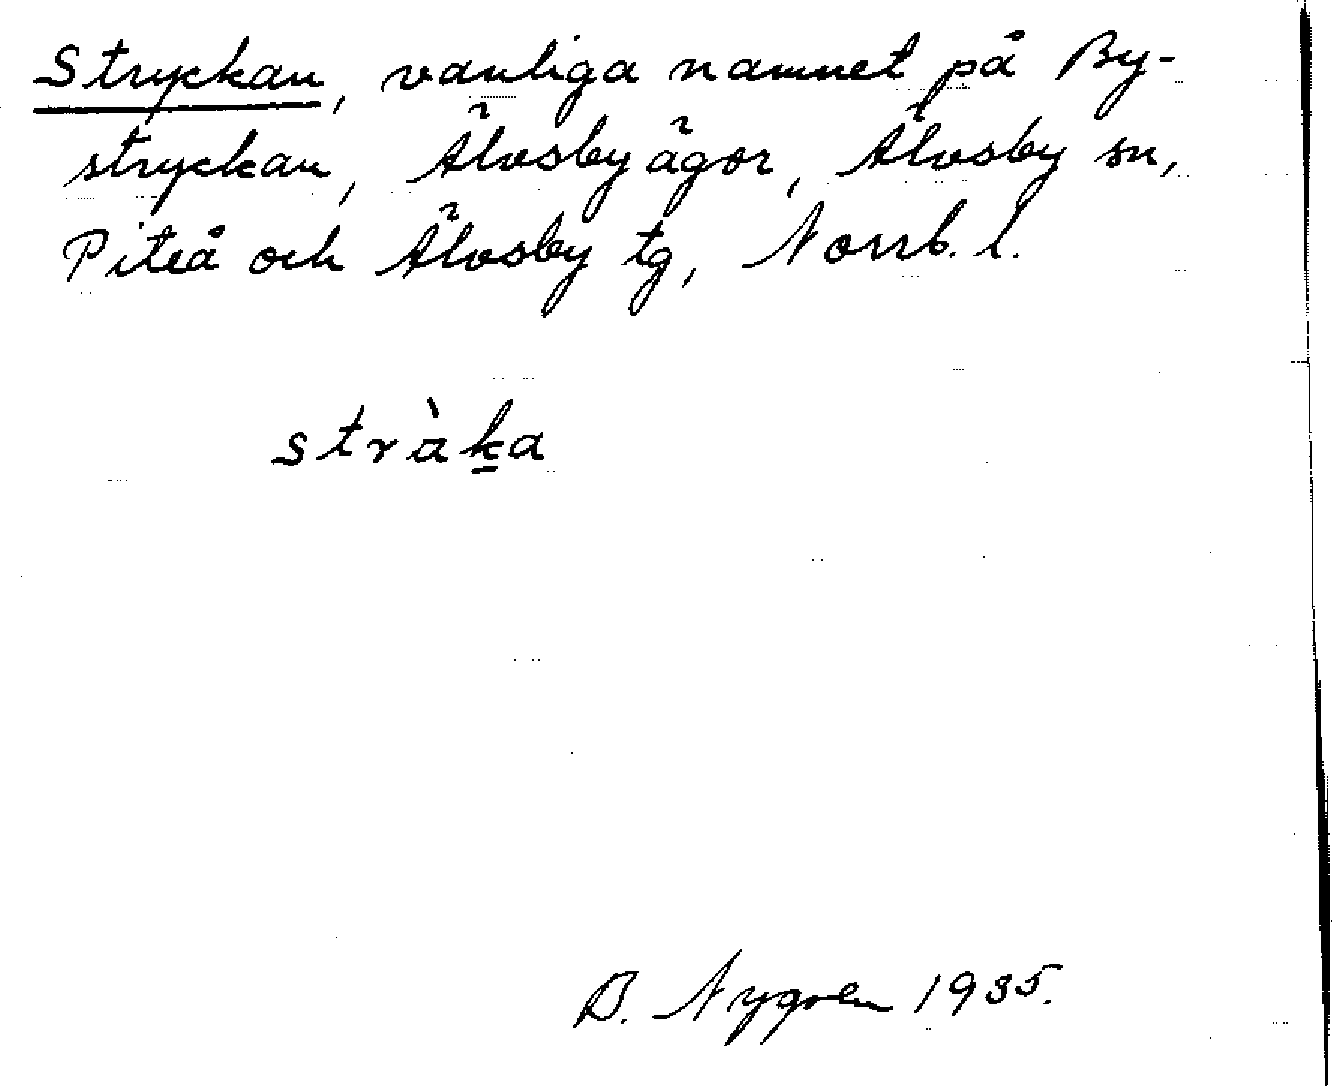 Stryckan, vanliga namnet på By-
stryckan, Älvsby ägor, Älvsby sn,
Piteå och Älvsby tg, Norrb. l.
stràk̠a
B. Nygren 1935.